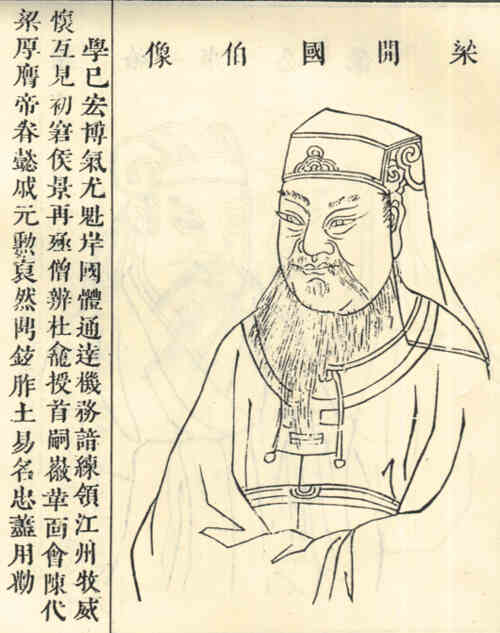 梁開國伯像
學已宏博氣尤魁岸國體通達機務諳練領江州牧威
懷互見初窘侯景再殛僧辨杜龕授首嗣徽革面會陳代
梁厚膺帝眷懿戚元勲裒然胙土易名忠藎用勸